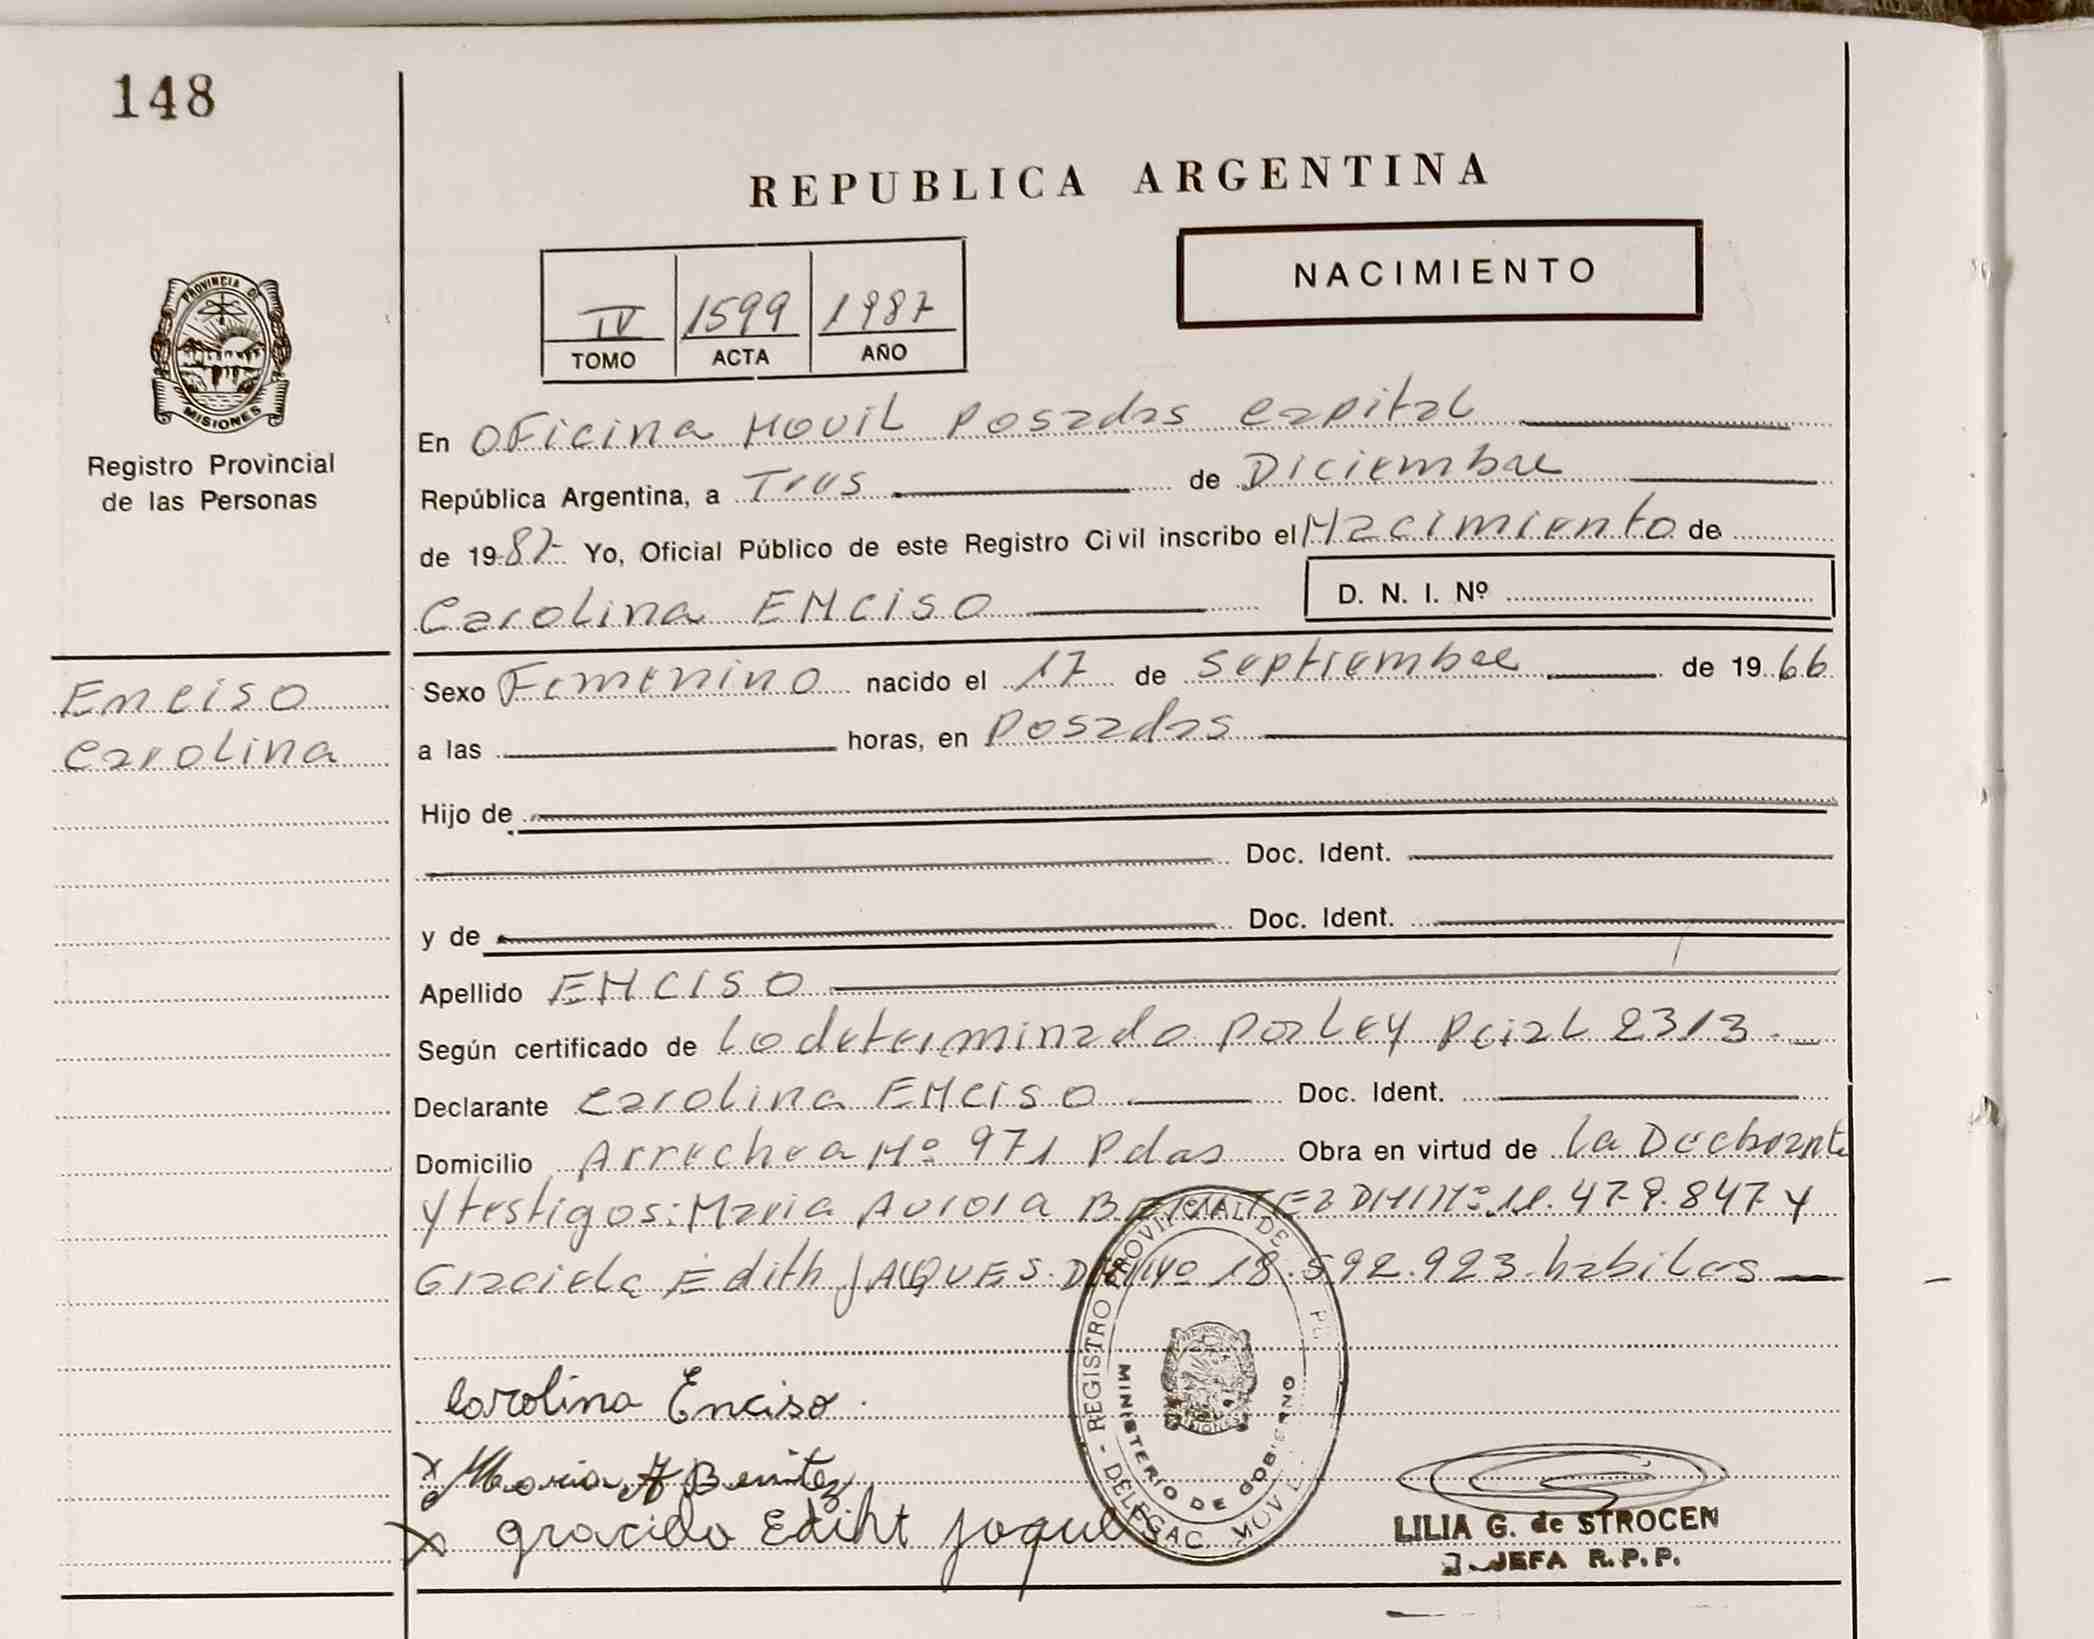 148
REPUBLICA ARGENTINA
NACIMIENTO
IV 1599 1987
TOMO ACTA AÑO
PROVINCIA DE MISIONES
Registro Provincial
de las Personas
En Oficina Movil Posadas Capital
República Argentina, a Tres de Diciembre
de 1987 Yo, Oficial Público de este Registro Civil inscribo el Nacimiento de
Carolina ENCISO D. N. I. Nº
Enciso
Carolina
Sexo Femenino nacido el 17 de Septiembre de 1966
a las horas, en Posadas
Hijo de
Doc. Ident.
y de Doc. Ident.
Apellido ENCISO
Según certificado de Lo determinado por Ley Pcial 2313.
Declarante Carolina ENCISO Doc. Ident.
Domicilio Arrechea Nº 971 Pdas Obra en virtud de la
y testigos: Maria Aurora BENITEZ DNI Nº 11.479.847 y
Graciela Edith JAQUES DNI Nº 18.592.923 habiles
Carolina Enciso.
Maria A Benitez
Graciela Ediht Jaques
REGISTRO PROVINCIAL DE
MINISTERIO DE GOBIERNO
DELEGAC. MOVIL
LILIA G. de STROCEN
JEFA R.P.P.